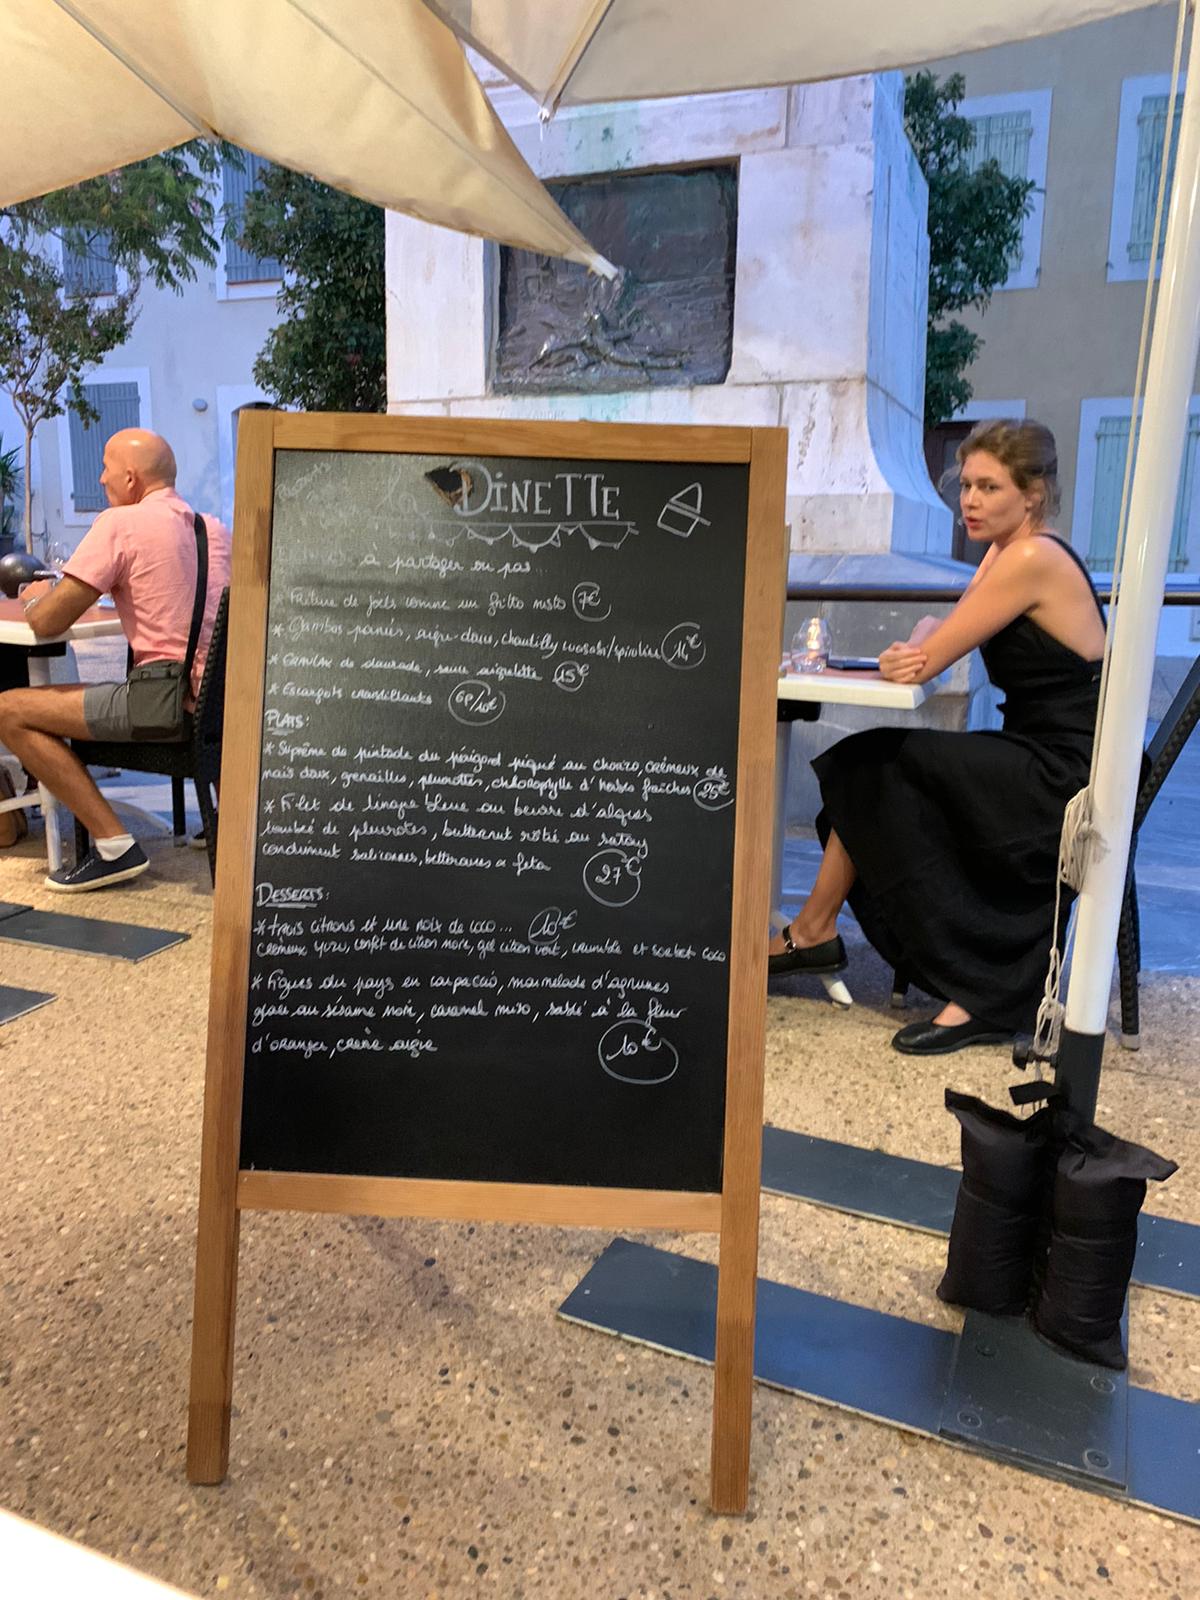 DINETTE
à partager ou pas...
* Friture de joels comme un fritto misto 7€
* Gambas panées, aigre-doux, chantilly wasabi/spiruline 14€
* GRAVLAX de daurade, sauce aigrelette 15€
* Escargots croustillants 6P/10€
PLATS:
* Suprême de pintade du périgord piqué au chorizo, crémeux de
maïs doux, grenailles, pleurottes, chlorophylle d'herbes fraîches 25€
* Filet de lingue bleue au beurre d'algues
de pleurotes, butternut rôtie au satay
condiment salicornes, betteraves & feta
27€
DESSERTS:
* trois citrons et une noix de coco... 10€
Crémeux yuzu, confit de citron noir, gel citron vert, crumble et sorbet coco
* Figues du pays en carpaccio, marmelade d'agrumes
glace au sésame noir, caramel miso, sablé à la fleur
d'oranger, crème aigre
10€